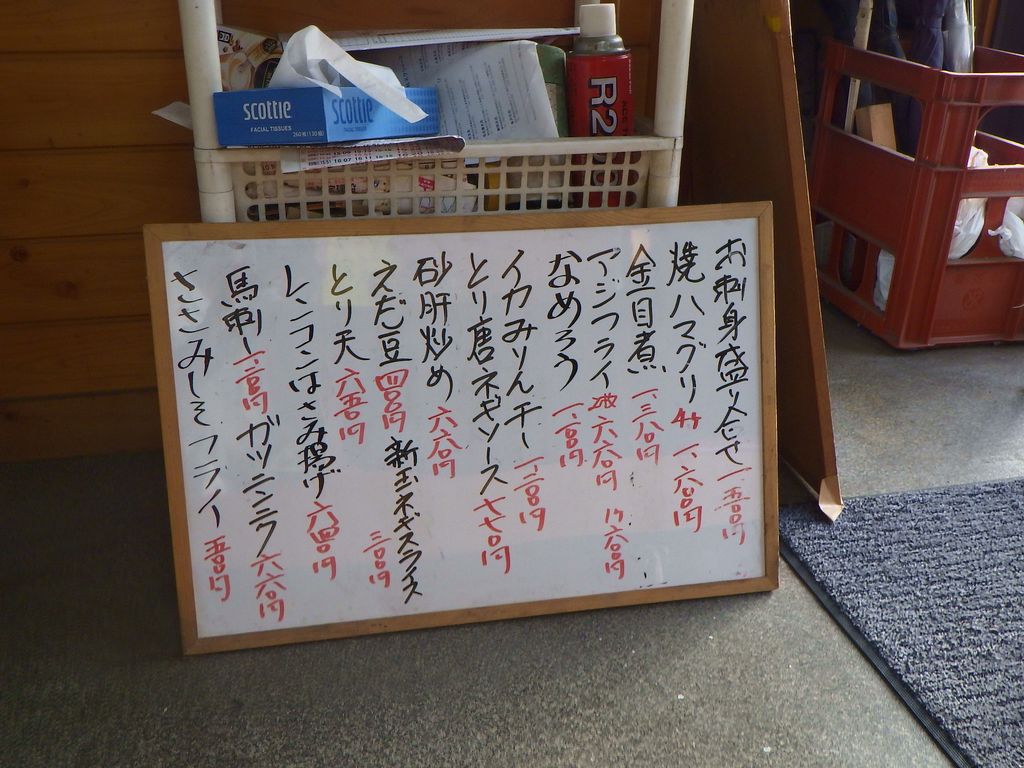 お刺身盛り合せ 一、五〇〇円
焼ハマグリ 4ヶ 一、六〇〇円
金目煮 一、三八〇円
アジフライ 2枚 六六〇円 1ケ 六〇〇円
なめろう 一、一〇〇円
イカみりんチー 一、二〇〇円
とり唐ネギソース 七七〇円
砂肝炒め 六六〇円
えだ豆 四四〇円 新玉ネギスライス 三〇〇円
とり天 六五〇円
レンコンはさみ揚げ 六四〇円
馬刺し 一、二〇〇円 ガツニンニク 六六〇円
ささみしそフライ 五五〇円
scottie
FACIAL TISSUES
scottie
FACIAL TISSUES
R2